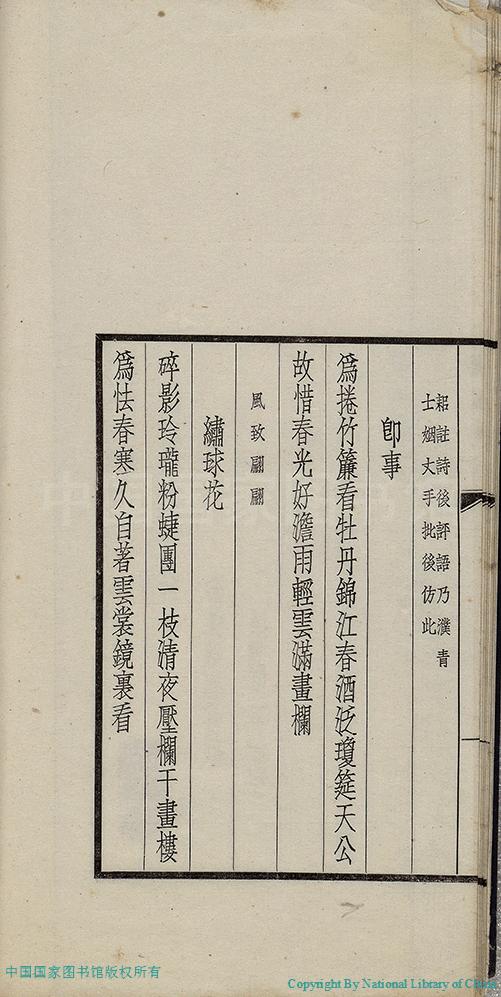 紹註詩後評語乃濮青
士姻丈手批後仿此
卽事
爲捲竹簾看牡丹錦江春酒泛瓊筵天公
故惜春光好澹雨輕雲滿畫欄
風致翩翩
繡球花
碎影玲瓏粉蜨團一枝清夜壓欄干畫樓
爲怯春寒久自著雲裳鏡裏看
中国国家图书馆版权所有
Copyright By National Library of China